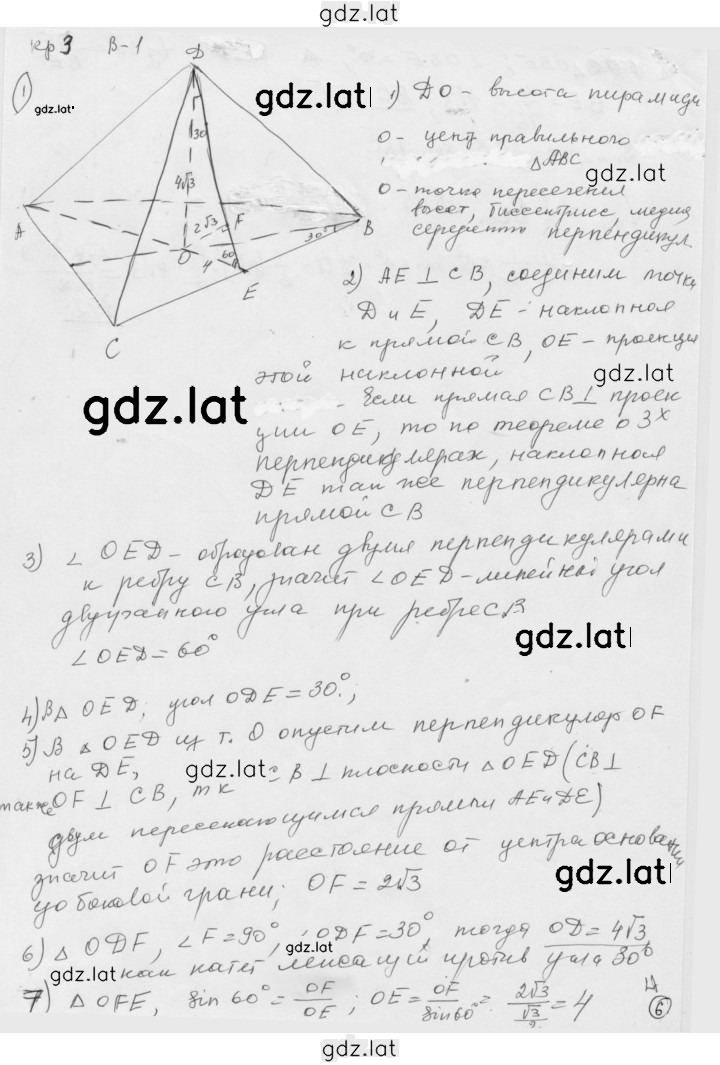 gdz.lat
кр 3 В-1
1
D
gdz.lat
gdz.lat
1) DO - высота пирамиды
О - центр правильного
△ABC
gdz.lat
О - точка пересечения
высот, биссектрисс, медиа
середин перпендикул
30°
4√3
2√3
F
A
B
30°
O
60
4
E
C
2) AE ⊥ CB, соединим точки
D и E, DE - наклонная
к прямой CB, OE - проекция
этой наклонной
gdz.lat
gdz.lat
Если прямая CB ⊥ проек
ции OE, то по теореме о 3х
перпендикулярах, наклонная
DE так же перпендикулярна
прямой CB
3) ∠ OED - образован двумя перпендикулярами
к ребру CB, значит ∠OED - линейный угол
двугранного угла при ребре CB
gdz.lat
∠OED = 60°
4) В △ OED, угол ODE = 30°;
5) В △ OED из т. O опустим перпендикуляр OF
на DE,
gdz.lat
CB ⊥ плоскости △OED (CB ⊥
также OF ⊥ CB, т к
двум пересекающимся прямым AE и DE)
значит OF это расстояние от центра основания
gdz.lat
до боковой грани; OF = 2√3
6) △ ODF, ∠F = 90°, ∠ODF = 30°, тогда OD = 4√3
gdz.lat
gdz.lat
как катет лежащий против угла 30°
7) △ OFE, sin 60° = OF/OE; OE = OF/sin60° = 2√3/(√3/2) = 4
6
gdz.lat